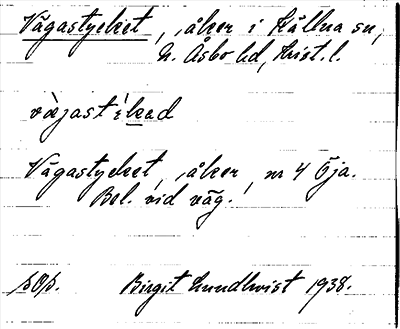 Vägastycket, åker i Källna sn,
N. Åsbo hd, Krist. l.
Vägastycket, åker, nr 4 Öja.
Bel. vid väg.
Birgit Lundkvist 1938.